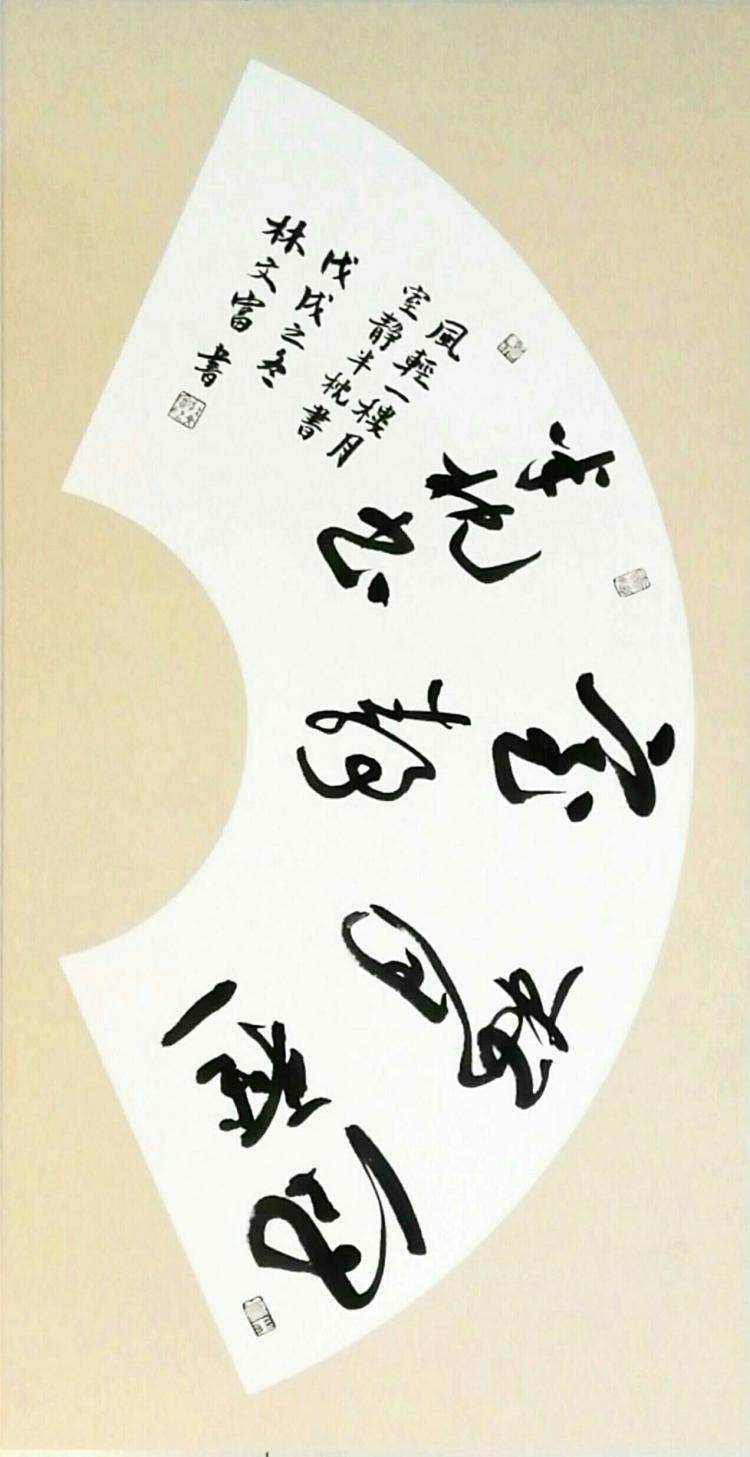 風輕一
樓月
室靜
半枕書
風輕一樓月
室靜半枕書
戊戌之冬
林文富書